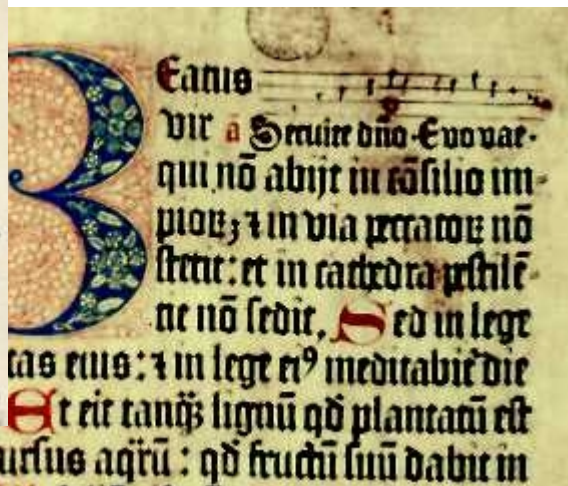 Beatus
vir a Seruite dño Euouae.
qui nō abijt in cōsilio im-
pioꝝ ⁊ in via peccatoꝝ nō
stetit: et in cathedra pestilē-
tie nō sedit. Sed in lege
tas eius: ⁊ in lege eiꝰ meditabit̄ die
Et erit tanqꝫ lignū qd̄ plantatū est
ursus aqr̄ū: qd̄ fructū suū dabit in